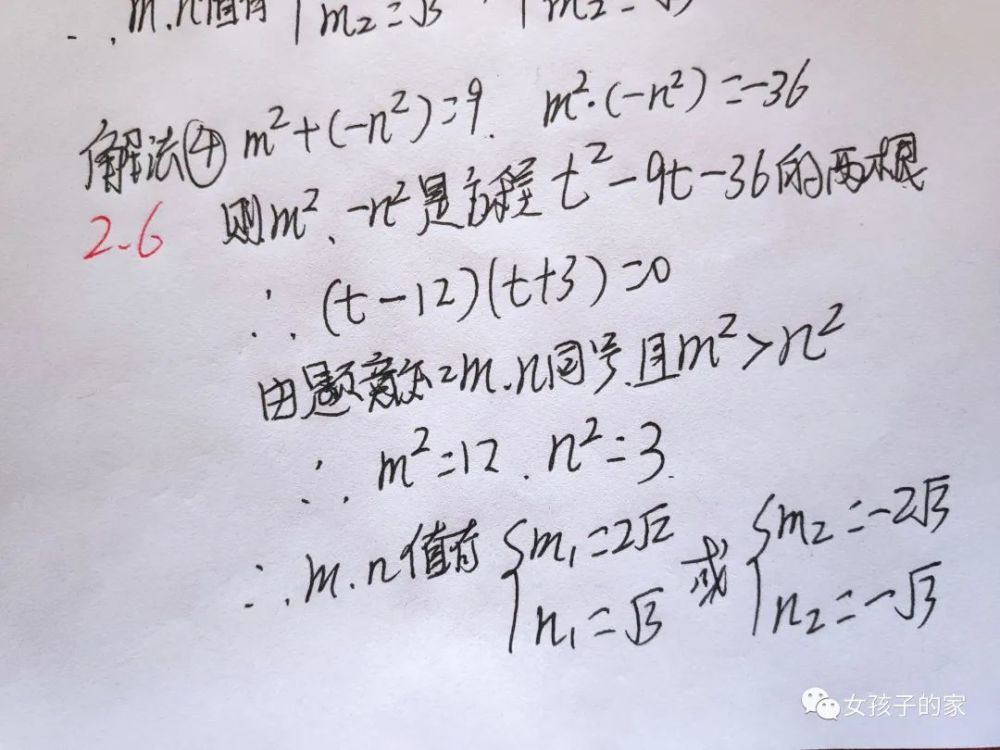 ∴ m.n值有 { m₂=√3 , { m₂=-√3
解法④ m²+(-n²)=9. m²·(-n²)=-36
2.6 则m²、-n²是方程 t²-9t-36的两根
∴ (t-12)(t+3)=0
由题意知=m.n同号.且m²>n²
∴ m²=12. n²=3.
∴ m.n值有 { m₁=2√2 或 { m₂=-2√3
n₁=√3 n₂=-√3
女孩子的家